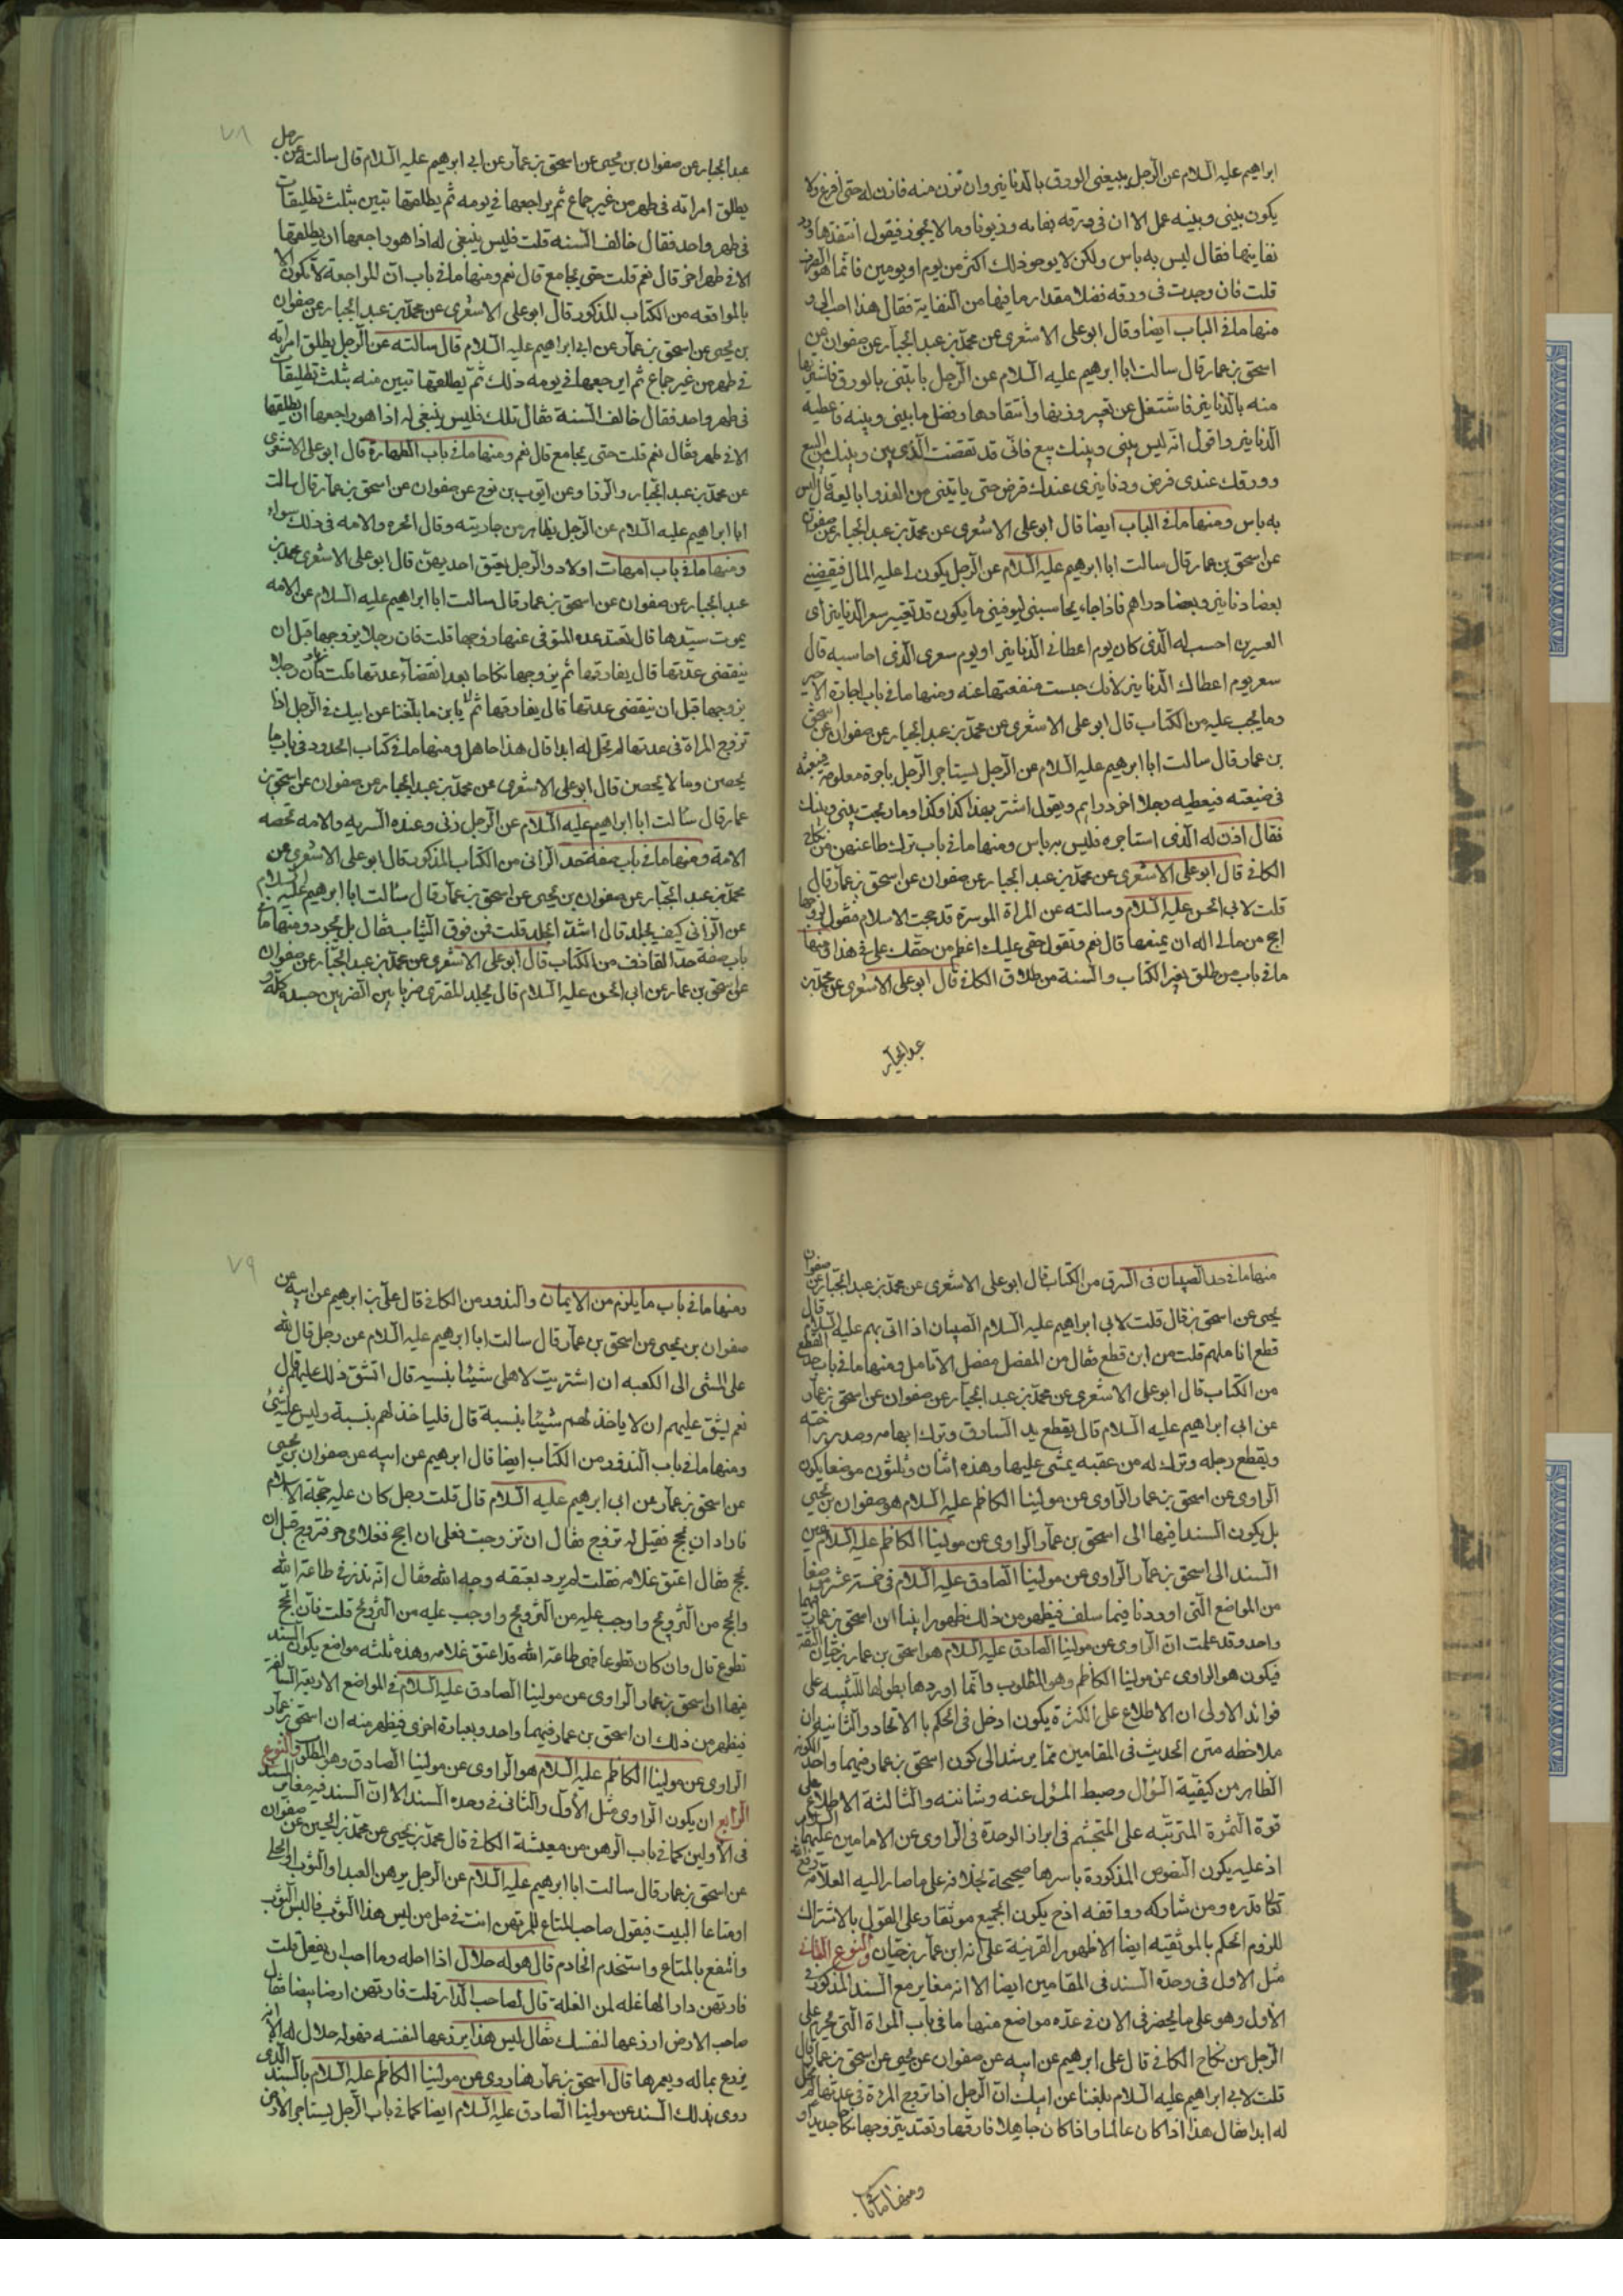 ابراهيم عليه السلام عن الرجل يبيعنى الورق بالدنانير واتزن منه فازن له حتى افرغ ولا
يكون بينى وبينه عمل الا ان فى ورقه نفايه وزيوفا وما لا يجوز فيقول انتقدها ورد
نفايتها فقال ليس به باس ولكن لا يوخر ذلك اكثر من يوم او يومين فانما هو الصرف
قلت فان وجدت فى ورقه فضلا مقدار ما فيها من النفاية فقال هذا احب الى و
منها ما فى الباب ايضا وقال ابو على الاشعرى عن محمد بن عبد الجبار عن صفوان عن
اسحق بن عمار قال سالت ابا ابراهيم عليه السلام عن الرجل ياتينى بالورق فاشتريها
منه بالدنانير فاشتغل عن تعيير وزنها وانتقادها وفضل ما بينى وبينه فاعطيه
الدنانير واقول انه ليس بينى وبينك بيع فانى قد نقضت الذى بينى وبينك من البيع
وورقك عندى قرض ودنانيرى عندك قرض حتى ياتينى من الغد وابايعه قال ليس
به باس ومنها ما فى الباب ايضا قال ابو على الاشعرى عن محمد بن عبد الجبار عن صفوان
عن اسحق بن عمار قال سالت ابا ابراهيم عليه السلام عن الرجل يكون لى عليه المال فيقضينى
بعضا دنانير وبعضا دراهم فاذا جاء يحاسبنى ليوفينى ما يكون قد تغير سعر الدنانير اى
السعرين احسب له الذى كان يوم اعطانى الدنانير او يوم سعرى الذى احاسبه قال
سعر يوم اعطاك الدنانير لانك حبست منفعتها عنه ومنها ما فى باب اجارة الاجير
وما يجب عليه من الكتاب قال ابو على الاشعرى عن محمد بن عبد الجبار عن صفوان عن اسحق
بن عمار قال سالت ابا ابراهيم عليه السلام عن الرجل يستاجر الرجل باجرة معلومة فيبعثه
فى ضيعته فيعطيه رجل اخر دراهم ويقول اشتر بهذا كذا وكذا وما ربحت بينى وبينك
فقال اذن له الذى استاجره فليس به باس ومنها ما فى باب ترك طاعتهن من نكاح
الكافى قال ابو على الاشعرى عن محمد بن عبد الجبار عن صفوان عن اسحق بن عمار قال
قلت لابى الحسن عليه السلام وسالته عن المراة الموسرة قد حجت الاسلام فتقول لزوجها
احج من مالى اله ان يمنعها قال نعم وتقول حقى عليك اعظم من حقك على فى هذا ومنها
ما فى باب من طلق بغير الكتاب والسنة من طلاق الكافى قال ابو على الاشعرى عن محمد بن
عبد الجبار
٧٨
عبد الجبار عن صفوان بن يحيى عن اسحق بن عمار عن ابى ابراهيم عليه السلام قال سالته عن رجل
يطلق امراته فى طهر من غير جماع ثم يراجعها فى يومه ثم يطلقها تبين بثلث تطليقات
فى طهر واحد فقال خالف السنه قلت فليس ينبغى له اذا هو راجعها ان يطلقها
الا فى طهر اخر قال نعم قلت حتى يجامع قال نعم ومنها ما فى باب ان المراجعة لا تكون الا
بالمواقعه من الكتاب المذكور قال ابو على الاشعرى عن محمد بن عبد الجبار عن صفوان
بن يحيى عن اسحق بن عمار عن ابى ابراهيم عليه السلام قال سالته عن الرجل يطلق امراته
فى طهر من غير جماع ثم ايرجعها فى يومه ذلك ثم يطلقها تبين منه بثلث تطليقات
فى طهر واحد فقال خالف السنة فقال تلك فليس ينبغى له اذا هو راجعها ان يطلقها
الا فى طهر فقال نعم قلت حتى يجامع قال نعم ومنها ما فى باب الظهارة قال ابو على الاشعرى
عن محمد بن عبد الجبار والرزاز وعن ايوب بن نوح عن صفوان عن اسحق بن عمار قال سالت
ابا ابراهيم عليه السلام عن الرجل يظاهر من جاريته وقال الحره والامه فى ذلك سواء
ومنها ما فى باب امهات اولاد والرجل يعتق احديهن قال ابو على الاشعرى محمد بن
عبد الجبار عن صفوان عن اسحق بن عمار قال سالت ابا ابراهيم عليه السلام عن الامه
يموت سيدها قال تعتد عده المتوفى عنها زوجها قلت فان رجلا يزوجها قبل ان
ينقضى عدتها قال يفارقها ثم يزوجها نكاحا بعد انقضاء عدتها قلت فان رجلا
يزوجها قبل ان ينقضى عدتها قال يفارقها ثم يا بن ما بلغنا عن ابيك فى الرجل اذا
تزوج المراة فى عدتها لم تحل له ابدا قال هذا جاهل ومنها ما فى كتاب الحدود فى باب ما
يحصن وما لا يحصن قال ابو على الاشعرى عن محمد بن عبد الجبار عن صفوان عن اسحق بن
عمار قال سالت ابا ابراهيم عليه السلام عن الرجل زنى وعنده السريه والامه تحصنه
الامة ومنها ما فى باب صفة حد الزانى من الكتاب المذكور قال ابو على الاشعرى عن
محمد بن عبد الجبار عن صفوان بن يحيى عن اسحق بن عمار قال سالت ابا ابراهيم عليه السلام
عن الزانى كيف يجلد قال اشد الجلد قلت فمن فوق الثياب فقال بل يجرد ومنها ما فى
باب صفة حد القاذف من الكتاب قال ابو على الاشعرى عن محمد بن عبد الجبار عن صفوان
عن اسحق بن عمار عن ابى الحسن عليه السلام قال يجلد المفترى ضربا بين الضربين جسده كله و
منها ما فى حد الصبيان فى السرق من الكتاب قال ابو على الاشعرى عن محمد بن عبد الجبار عن صفوان
يحيى عن اسحق بن قال قلت لابى ابراهيم عليه السلام الصبيان اذا اتى بهم عليه السلام قال
قطع اناملهم قلت من اين قطع فقال من المفصل مفصل الانامل ومنها ما فى باب حد القطع
من الكتاب قال ابو على الاشعرى عن محمد بن عبد الجبار عن صفوان عن اسحق بن عمار
عن ابى ابراهيم عليه السلام قال يقطع يد السارق وترك ابهامه وصدر راحته
ويقطع رجله وترك له من عقبه يمشى عليها وهذه اثنان وثلثون موضعا يكون
الراوى عن اسحق بن عمار الراوى عن مولينا الكاظم عليه السلام هو صفوان بن يحيى
بل يكون السند فيها الى اسحق بن عمار الراوى عن مولينا الكاظم عليه السلام عين
السند الى اسحق بن عمار الراوى عن مولينا الصادق عليه السلام فى خمسة عشر موضعا
من المواضع التى اوردنا فيما سلف فيظهر من ذلك ظهورا بينا ان اسحق بن عمار فيهما
واحد وقد علمت ان الراوى عن مولينا الصادق عليه السلام هو اسحق بن عمار بن حيان الثقة
فيكون هو الراوى عن مولينا الكاظم وهو المطلوب وانما اوردها بطولها للتنبيه على
فوائد الاولى ان الاطلاع على الكثرة يكون ادخل فى الحكم بالاتحاد والثانيه ان
ملاحظه متن الحديث فى المقامين مما يرشد الى كون اسحق بن عمار فيهما واحد الكونه
الظاهر من كيفية السؤال وضبط المسؤل عنه وشانته والثالثة الاطلاع على
قوة الثمرة المترتبه على المتجشم فى ابراز الوحدة فى الراوى عن الامامين عليهما السلام
اذ عليه يكون النصوص المذكورة باسرها صحيحاة بخلافه على ما صار اليه العلامه رفع الله
تعالى قدره ومن شاركه ووافقه اذ ح يكون الجميع موثقا وعلى القول بالاشتراك
للزوم الحكم بالموثقيه ايضا الا ظهور القرنية على انه ابن عمار بن حيان والنوع الثالث
مثل الاول فى وحدة السند فى المقامين ايضا الا انه مغاير مع السند المذكور فى
الاول وهو على ما يحضر فى الان فى عده مواضع منها ما فى باب المراة التى تحرم على
الرجل من نكاح الكافى قال على ابرهيم عن ابيه عن صفوان عن يحيى عن اسحق بن عمار قال
قلت لابى ابراهيم عليه السلام بلغنا عن ابيك ان الرجل اذا تزوج المراة فى عدتها لم تحل
له ابدا فقال هذا اذا كان عالما واذا كان جاهلا فارقها وتعتد ثم يتزوجها نكاحا جديدا و
ومنها ما فى باب
٧٩
ومنها ما فى باب ما يلزم من الايمان والنذور من الكافى قال على بن ابراهيم عن ابيه عن
صفوان بن يحيى عن اسحق بن عمار قال سالت ابا ابراهيم عليه السلام عن رجل قال لله
على المشى الى الكعبه ان اشتريت لاهلى شيئا بنسيه قال ايشق ذلك عليهم قال
نعم ليشق عليهم ان لا ياخذ لهم شيئا بنسية قال فلياخذ لهم بنسية وليس عليه شئ
ومنها ما فى باب النذور من الكتاب ايضا قال ابرهيم عن ابيه عن صفوان بن يحيى
عن اسحق بن عمار عن ابى ابرهيم عليه السلام قال قلت رجل كان عليه حجة الاسلام
فاراد ان يحج فقيل له تزوج فقال ان تزوجت فعلى ان احج فغلامى حر فتزوج قبل ان
يحج فقال اعتق غلامه فقلت لم يرد بعتقه وجه الله فقال انه نذر فى طاعة الله
والحج من التزويج واوجب عليه من التزويج واوجب عليه من التزويج قلت فان الحج
تطوع قال وان كان تطوعا فهى طاعة الله قد اعتق غلامه وهذه ثلثه مواضع يكون السند
فيها ان اسحق بن عمار الراوى عن مولينا الصادق عليه السلام فى المواضع الاربعة السالفة
فيظهر من ذلك ان اسحق بن عمار فيهما واحد وبعبارة اخرى فيظهر منه ان اسحق بن عمار
الراوى عن مولينا الكاظم عليه السلام هو الراوى عن مولينا الصادق وهو المطلوب والنوع
الرابع ان يكون الراوى مثل الاول والثانى فى وحده السند الا ان السند فيه مغاير للسند
فى الاولين كما فى باب الرهن من معيشة الكافى قال محمد بن يحيى عن محمد بن الحسين عن صفوان
عن اسحق بن عمار قال سالت ابا ابرهيم عليه السلام عن الرجل يرهن العبد او الثوب او الحلى
او متاعا البيت فيقول صاحب المتاع للمرتهن انت فى حل من لبس هذا الثوب فالبس الثوب
وانتفع بالمتاع واستخدم الخادم قال هو له حلال اذا احله وما احب ان يفعل قلت
فارتهن دارا لها غله لمن الغلة قال لصاحب الدار قلت فارتهن ارضا بيضا فقال
صاحب الارض ازرعها لنفسك فقال ليس هذا يزرعها لنفسه فهو له حلال له الا انه
يزرع بماله ويعمرها قال اسحق بن عمار هنا روى عن مولينا الكاظم عليه السلام بالسند الذى
روى بذلك السند عن مولينا الصادق عليه السلام ايضا كما فى باب الرجل يستاجر الارض